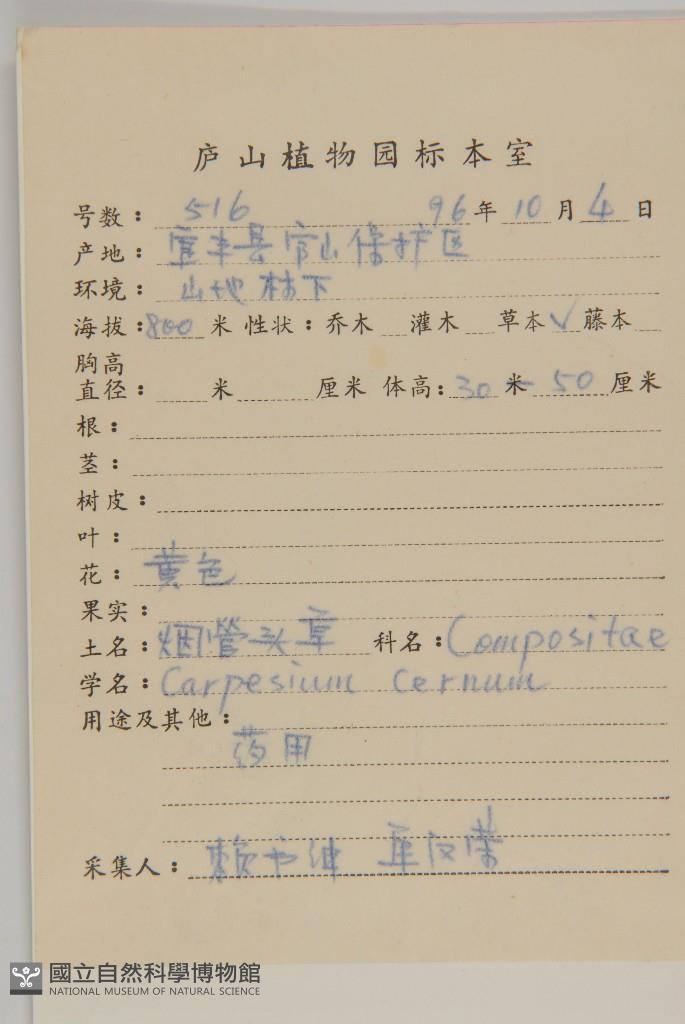 庐山植物园标本室
号数：516 96年10月4日
产地：宜丰县官山保护区
环境：山地林下
海拔：800米 性状：乔木 灌木 草本√藤本
胸高
直径： 米 厘米 体高：30米－50厘米
根：
茎：
树皮：
叶：
花：黄色
果实：
土名：烟管头草 科名：Compositae
学名：Carpesium cernum
用途及其他：
药用
采集人：赖书绅
國立自然科學博物館
NATIONAL MUSEUM OF NATURAL SCIENCE